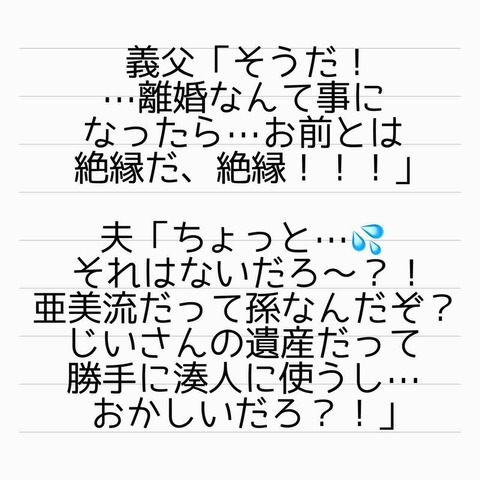 義父「そうだ！
…離婚なんて事に
なったら…お前とは
絶縁だ、絶縁！！！」
夫「ちょっと…💦
それはないだろ〜？！
亜美流だって孫なんだぞ？
じいさんの遺産だって
勝手に湊人に使うし…
おかしいだろ？！」